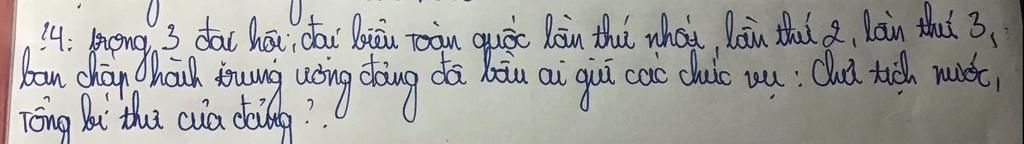 14: trong 3 đại hội, đại biểu toàn quốc lần thứ nhất, lần thứ 2, lần thứ 3,
ban chấp hành trung ương đảng đã bầu ai giữ các chức vụ: Chủ tịch nước,
Tổng bí thư của đảng?.